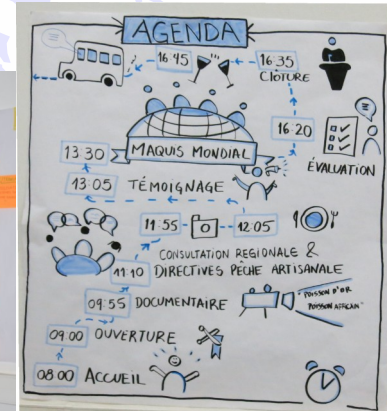 AGENDA
16:45
16:35
CLÔTURE
16:20
ÉVALUATION
13:30
MAQUIS MONDIAL
13:05
TÉMOIGNAGE
11:55
12:05
CONSULTATION REGIONALE &
11:10
DIRECTIVES PÊCHE ARTISANALE
09:55
DOCUMENTAIRE
"POISSON D'OR
POISSON AFRICAIN"
09:00
OUVERTURE
08:00
ACCUEIL